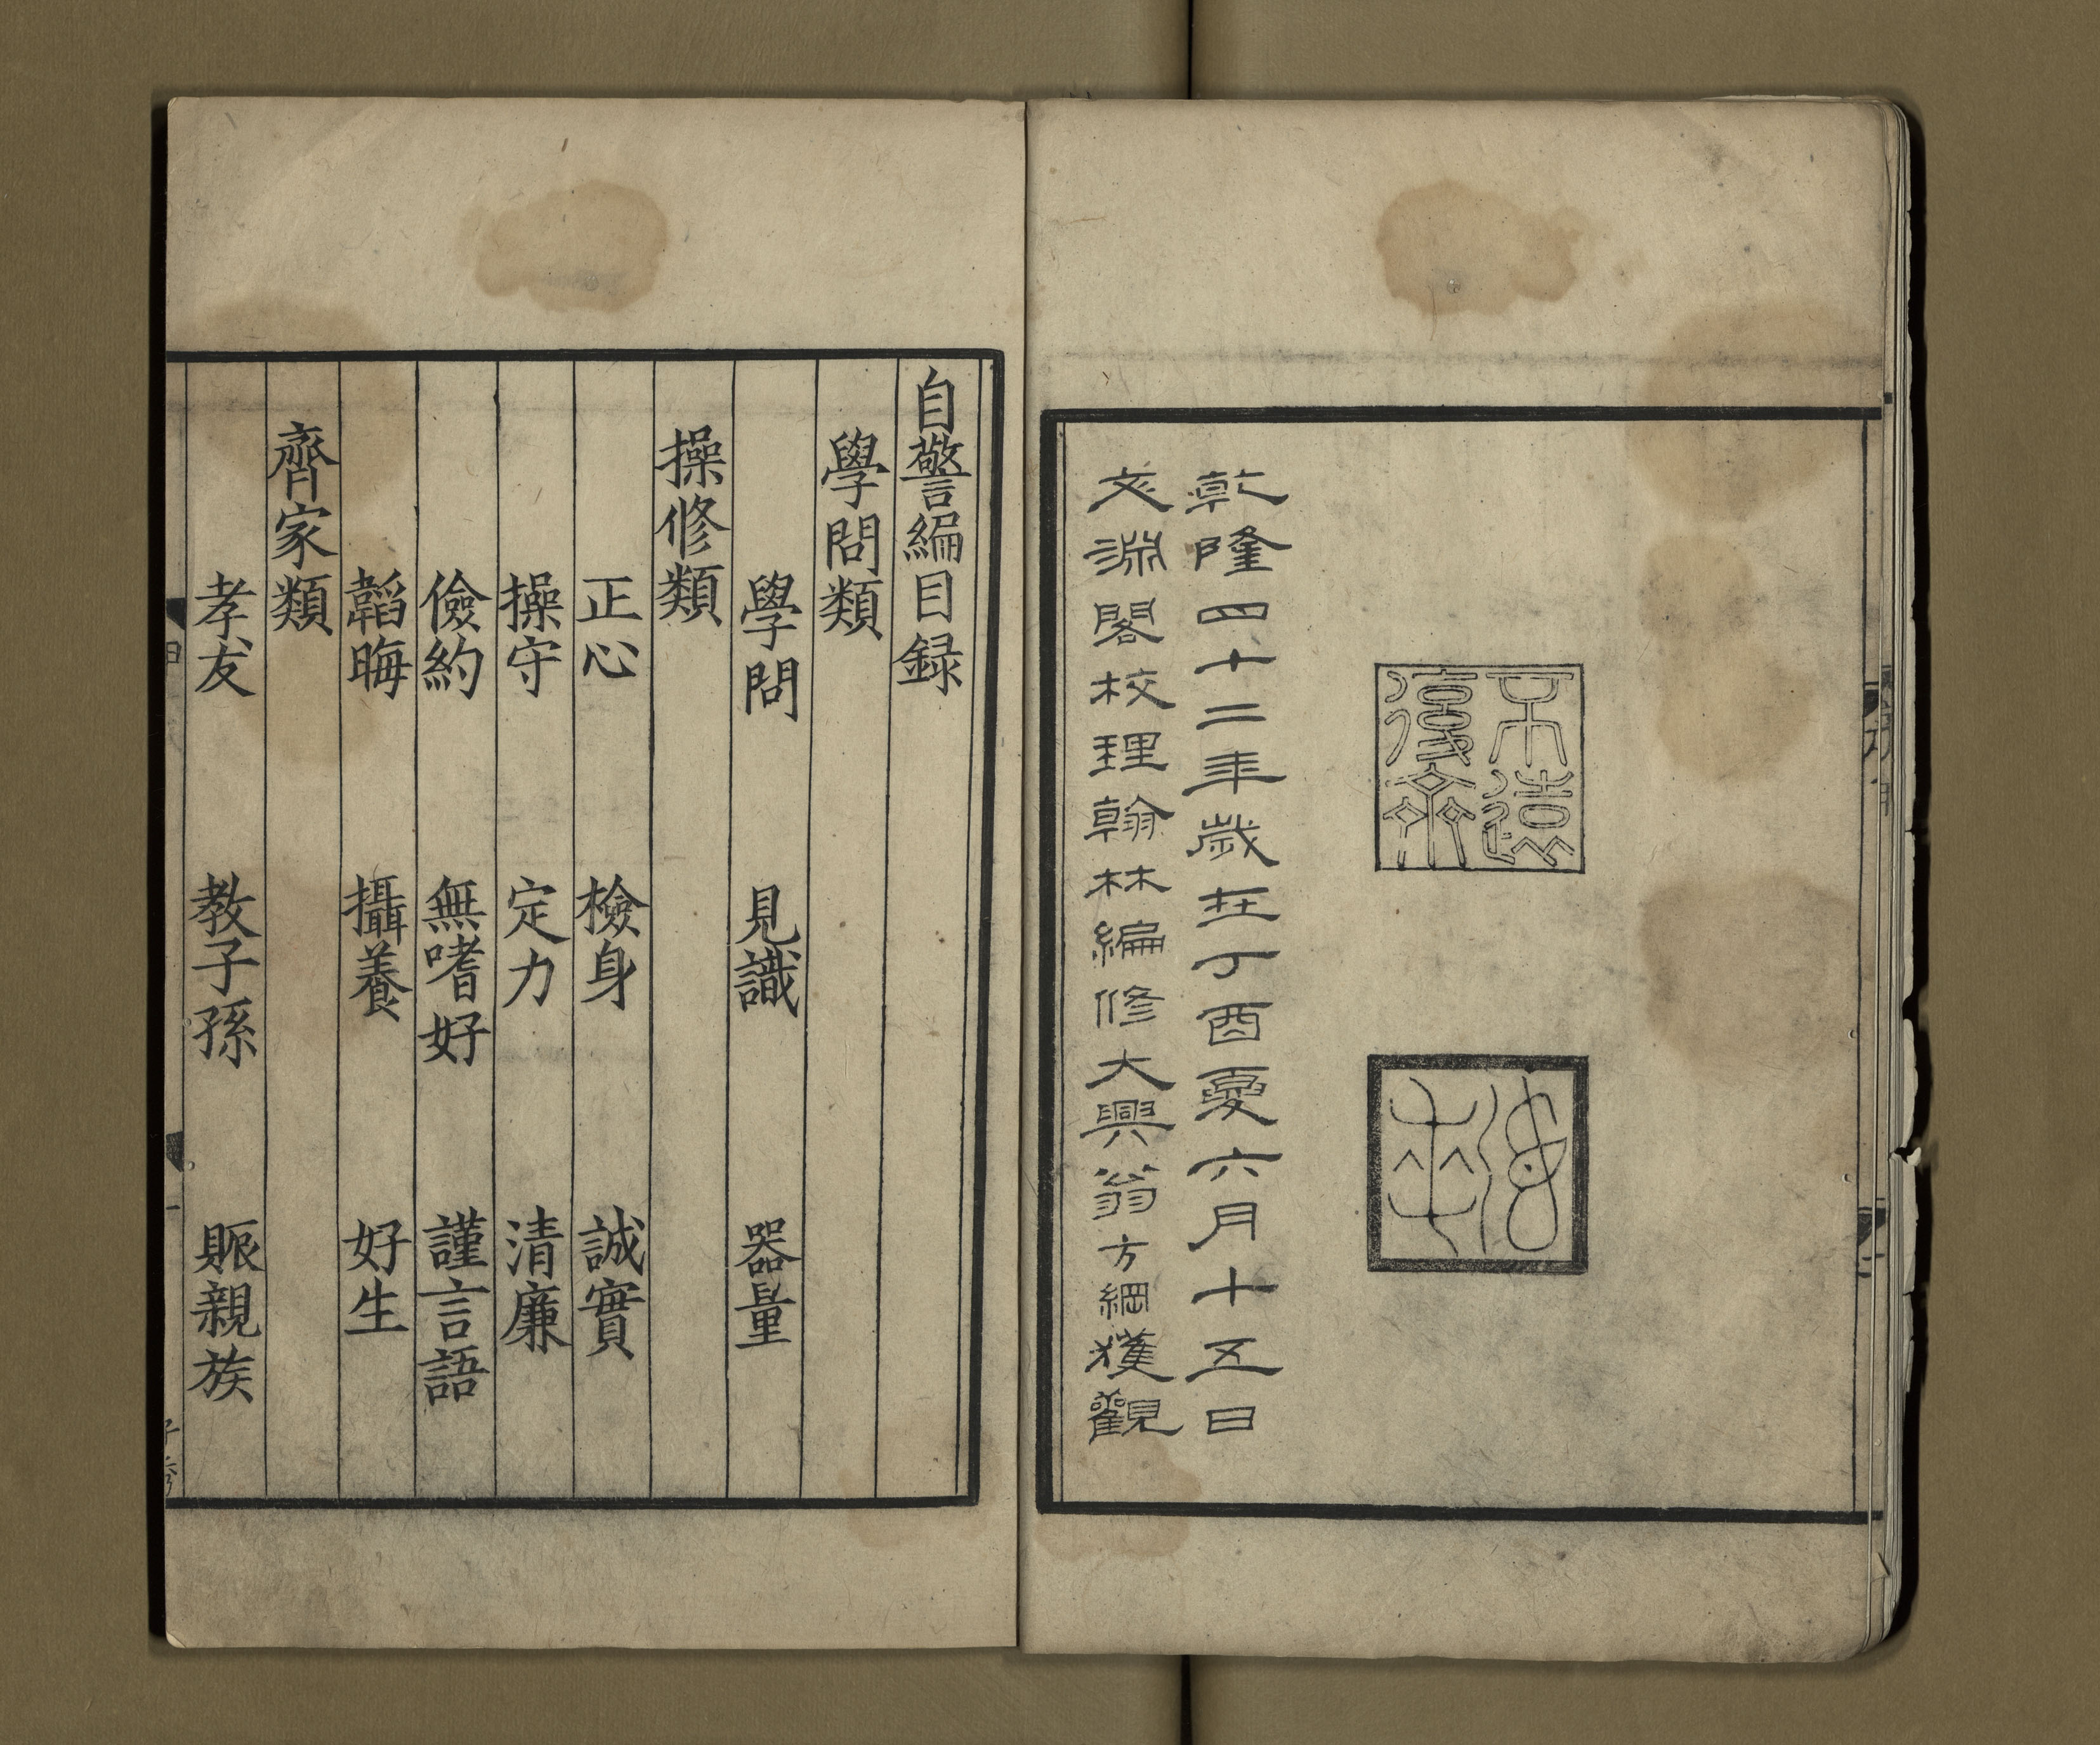 不遠
復齋
乾隆四十二年歲在丁酉夏六月十五日
文淵閣校理翰林編修大興翁方綱獲觀
自警編目録
學問類
學問 見識 器量
操修類
正心 檢身 誠實
操守 定力 清廉
儉約 無嗜好 謹言語
韜晦 攝養 好生
齊家類
孝友 教子孫 賑親族